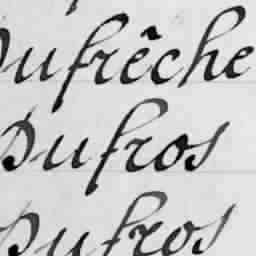 Dufrêche
Dufros
Dufros